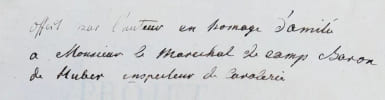 offert par l'auteur en homage d'amitié
a Monsieur le Marechal de camp Baron
de Huber inspecteur de Cavalerie